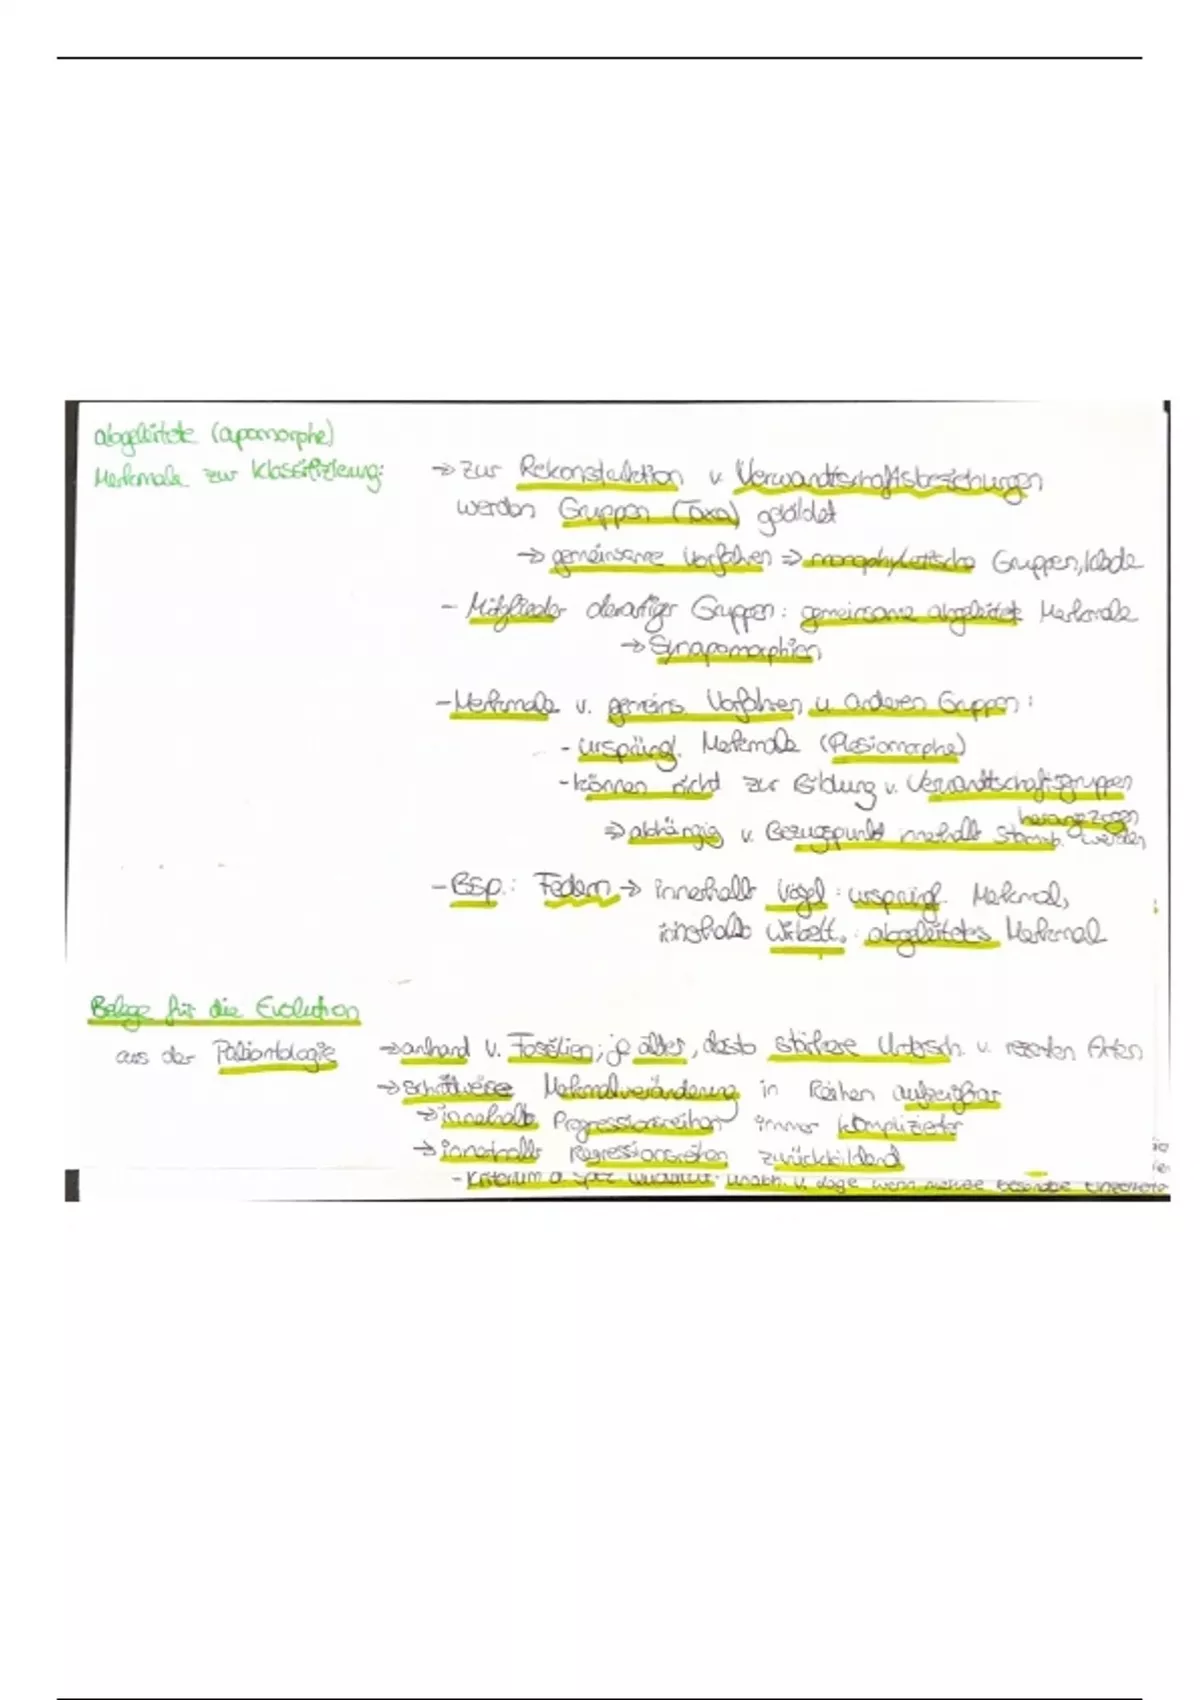 abgeleitete (apomorphe)
Merkmale zur Klassifizierung:
→ zur Rekonstruktion v. Verwandtschaftsbeziehungen
werden Gruppen (Taxa) gebildet
→ gemeinsame Vorfahren ⇒ monophyletische Gruppen,
- Mitglieder derartiger Gruppen: gemeinsame abgeleitete Merkmale
→ Synapomorphien
- Merkmale v. gemeins. Vorfahren u. anderen Gruppen:
- ursprüngl. Merkmale (Plesiomorphe)
- können nicht zur Bildung v. Verwandtschaftsgruppen
herangezogen
⇒ abhängig v. Bezugspunkt innerhalb Stammb. werden
- Bsp.: Federn → innerhalb Vögel: ursprüngl. Merkmal,
innerhalb Wirbelt.: abgeleitetes Merkmal
Belege für die Evolution
aus der Paläontologie
→ anhand v. Fossilien; je älter, desto stärkere Untersch. v. rezenten Arten
→ schrittweise Merkmalveränderung in Reihen aufzeigbar
→ innerhalb Progressionsreihen immer komplizierter
→ innerhalb Regressionsreihen zurückbildend
- Kriterium d. spez. Qualität: unabh. v. Lage wenn